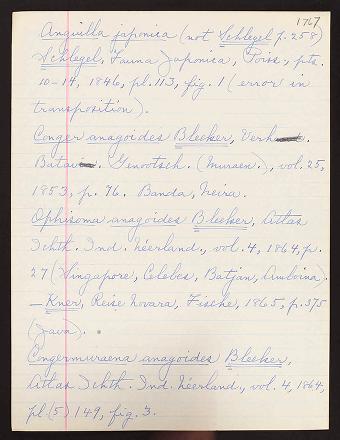 1767
Anguilla japonica (not Schlegel p. 258)
Schlegel, Fauna Japonica, Poiss., pts.
10-14, 1846, pl. 113, fig. 1 (error in
transposition).
Conger anagoides Bleeker, Verh.
Batav. Genootsch. (Muraen.), vol. 25,
1853, p. 76. Banda, Neira.
Ophisoma anagoides Bleeker, Atlas
Ichth. Ind. Néerland., vol. 4, 1864, p.
27 (Singapore, Celebes, Batjan, Amboina).
—Kner, Reise Novara, Fische, 1865, p. 375
(Java).
Congermuraena anagoides Bleeker,
Atlas Ichth. Ind. Néerland., vol. 4, 1864,
pl. (5) 149, fig. 3.